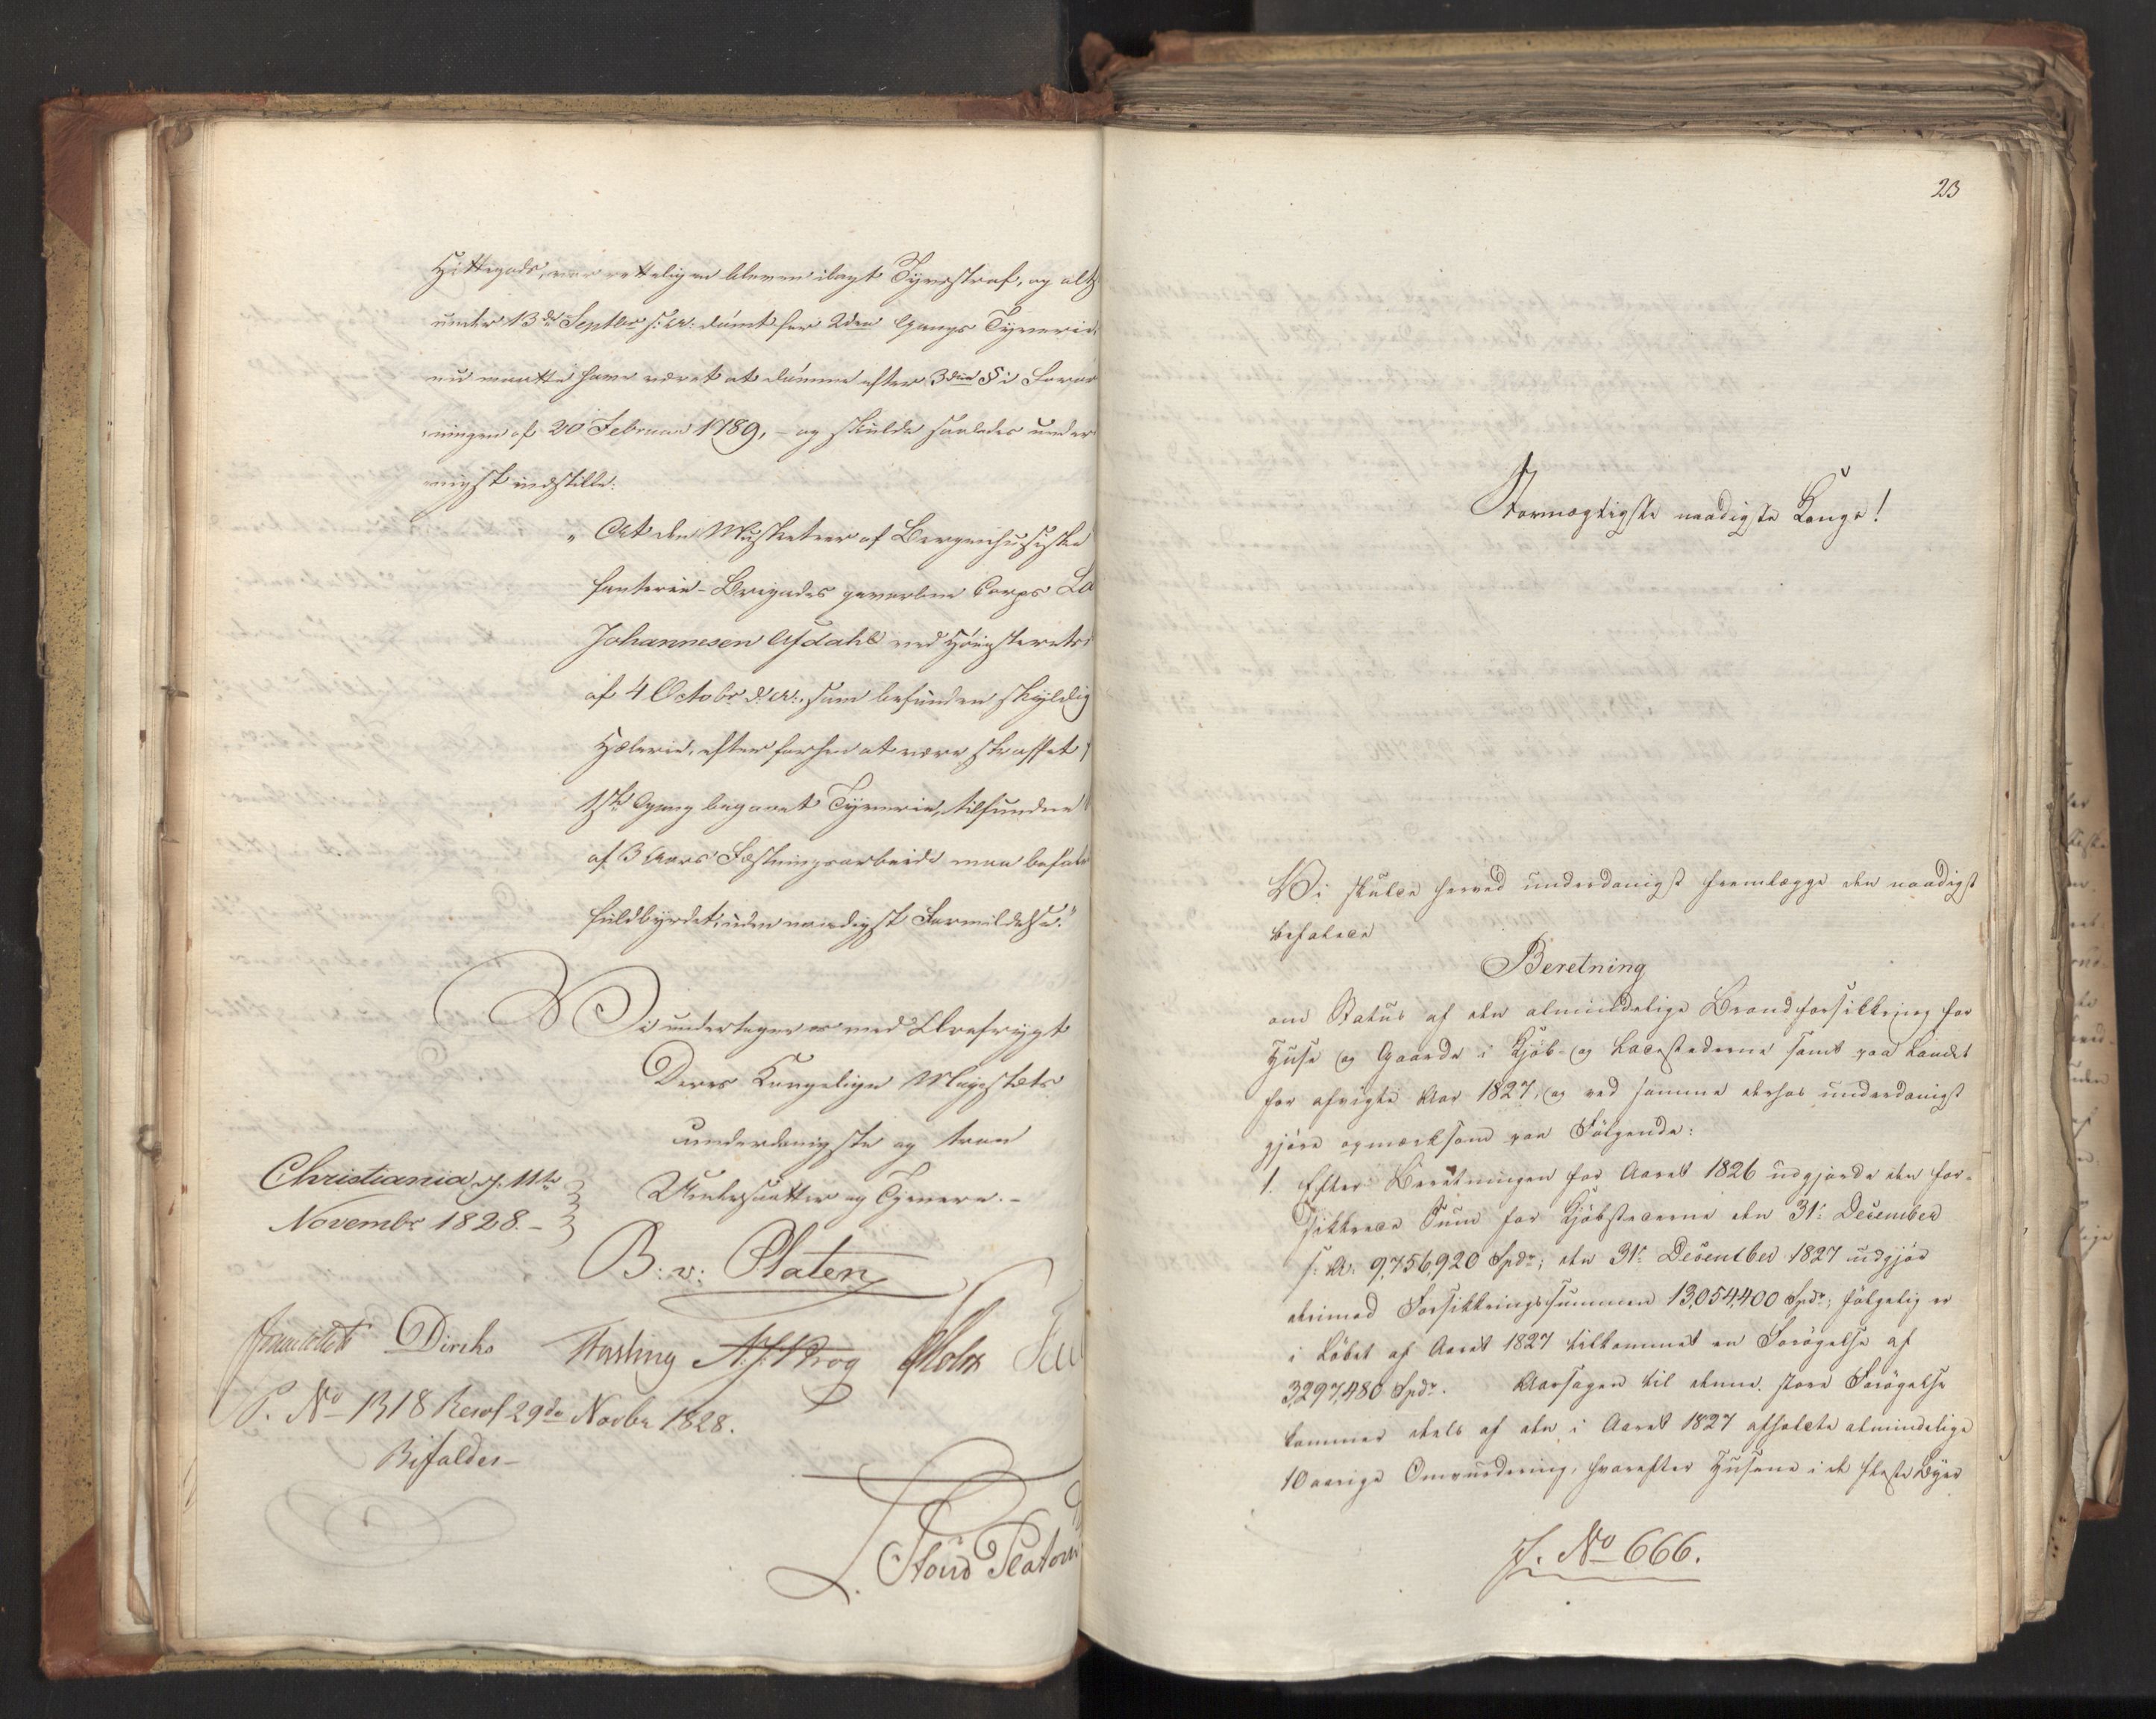 Hittegods, var rettelig en bleven ilagt Tyvsstraf, og alts
under 13de Septbr f: A: dømt for 2den Gangs Tyverie,
nu maatte have været at dømme efter 3die § i Foror
ningen af 20 Februar 1789, – og skulde saaledes under
nigst indstille:
„At den Musketeer af Bergenhusiske
fanterie-Brigades gevorbne Corps La
Johannesen Asdahl ved Høiesterets
af 4 Octobr d: A:, som befunden skyldig
Hælerie, efter forhen at være straffet f
1ste Gang begaaet Tyverie, tilfundne
af 3 Aars Fæstningsarbeide maa befales
fuldbyrdet, uden naadigst Formildelse."
Vi undertegne os med Ærefrygt
Deres Kongelige Majestæts
underdanigste og troe
Undersaatter og Tjenere. –
Christiania d. 11te
Novembr 1828 –
B: v: Platen
Diriks Fasting Krog Holst
P. No 1318 Resol 29de Novbr 1828.
Bifaldes –
23
Stormægtigste naadigste Konge!
Vi skulle herved underdanigst fremlægge den naadigst
befalede
Beretning
om Status af den almindelige Brandforsikkring for
Huse og Gaarde i Kjøb- og Ladestæderne samt paa Landet
for afvigte Aar 1827, og ved samme derhos underdanigst
gjøre opmærksom paa Følgende:
1. Efter Beretningen for Aaret 1826 udgjorde den for-
sikkrede Sum for Kjøbstæderne den 31: December
s: A: 9,756,920 Spdr; den 31: December 1827 udgjør
derimod Forsikkringssummen 13,054,400 Spdr; følgelig er
i Løbet af Aaret 1827 tilkommet en Forøgelse af
3,297,480 Spdr. Aarsagen til denne store Forøgelse
kommer dels af den i Aaret 1827 afholdte almindelige
10 aarige Omvurdering, hvorefter Husene i de fleste Byer
J. No 666.